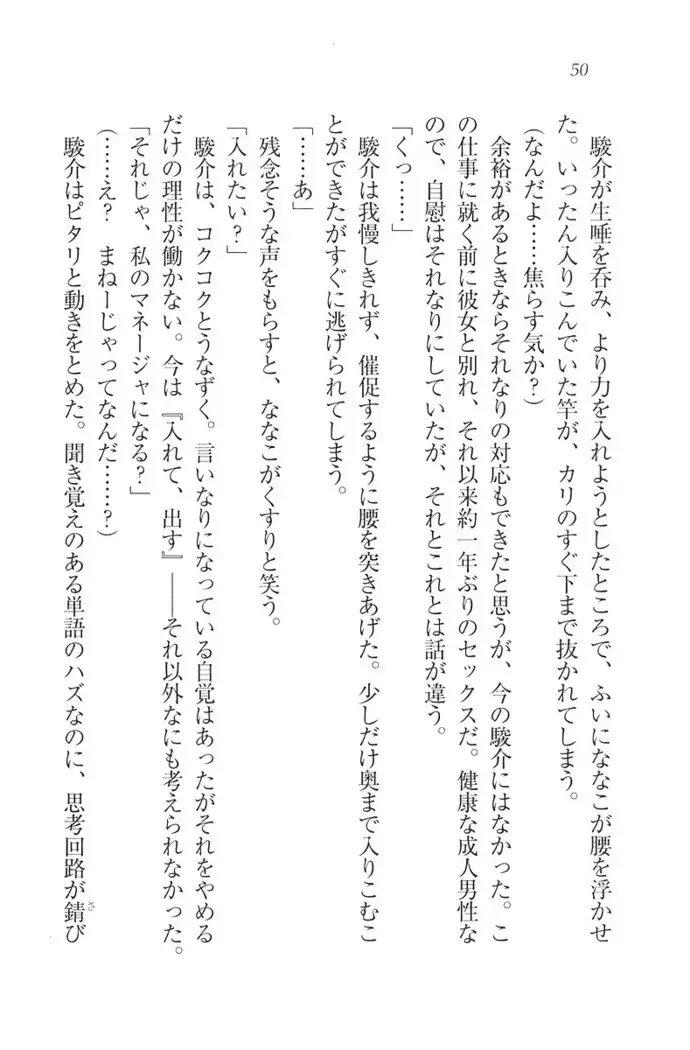 50
駿介が生唾を呑み、より力を入れようとしたところで、ふいにななこが腰を浮かせ
た。いったん入りこんでいた竿が、カリのすぐ下まで抜かれてしまう。
(なんだよ……焦らす気か?)
余裕があるときならそれなりの対応もできたと思うが、今の駿介にはなかった。こ
の仕事に就く前に彼女と別れ、それ以来約一年ぶりのセックスだ。健康な成人男性な
ので、自慰はそれなりにしていたが、それとこれとは話が違う。
「くっ……」
駿介は我慢しきれず、催促するように腰を突きあげた。少しだけ奥まで入りこむこ
とができたがすぐに逃げられてしまう。
「……あ」
残念そうな声をもらすと、ななこがくすりと笑う。
「入れたい?」
駿介は、コクコクとうなずく。言いなりになっている自覚はあったがそれをやめる
だけの理性が働かない。今は『入れて、出す』――それ以外なにも考えられなかった。
「それじゃ、私のマネージャになる?」
(……え? まねーじゃってなんだ……?)
駿介はピタリと動きをとめた。聞き覚えのある単語のハズなのに、思考回路が錆び
さ